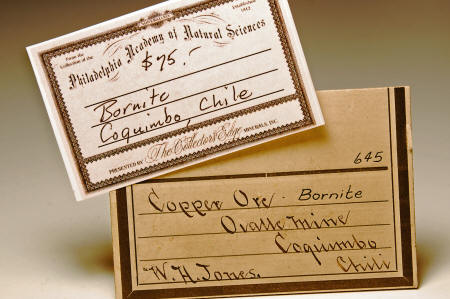 From the
Collection of the
Established
1812
Philadelphia Academy of Natural Sciences
$75.-
Bornite
Coquimbo, Chile
PRESENTED BY The Collector's Edge MINERALS, INC.
645
Copper Ore - Bornite
Ovalle Mine
Coquimbo
Chili
"W.H. Jones.